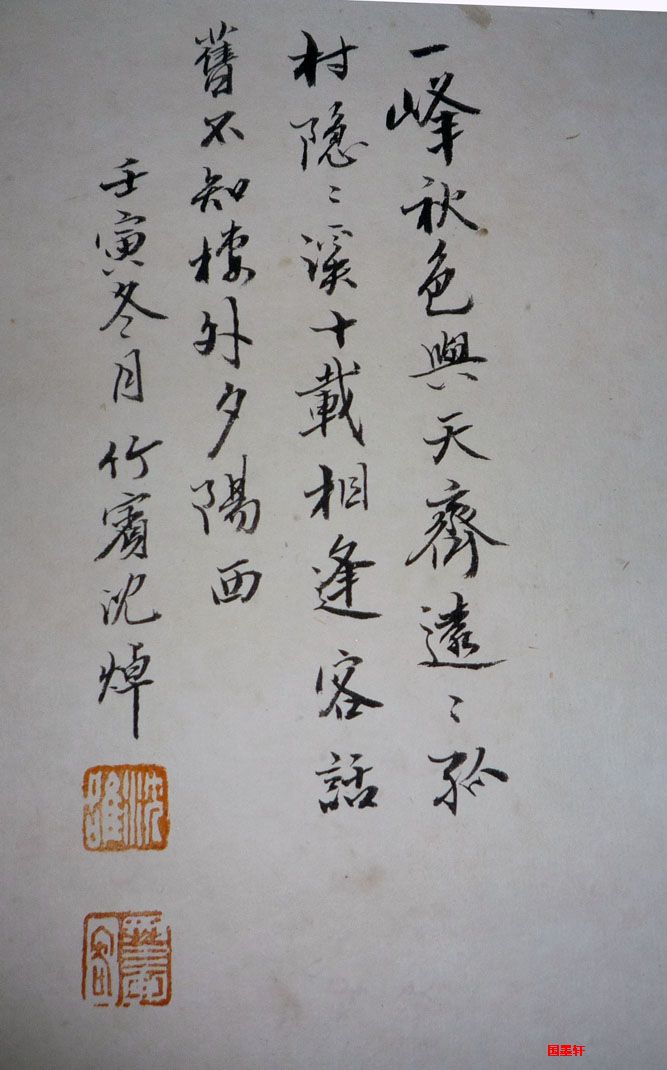 一峰秋色與天齊遠〻孤
村隐〻溪十載相逢客話
舊不知樓外夕陽西
壬寅冬月竹賓沈焯
国墨轩